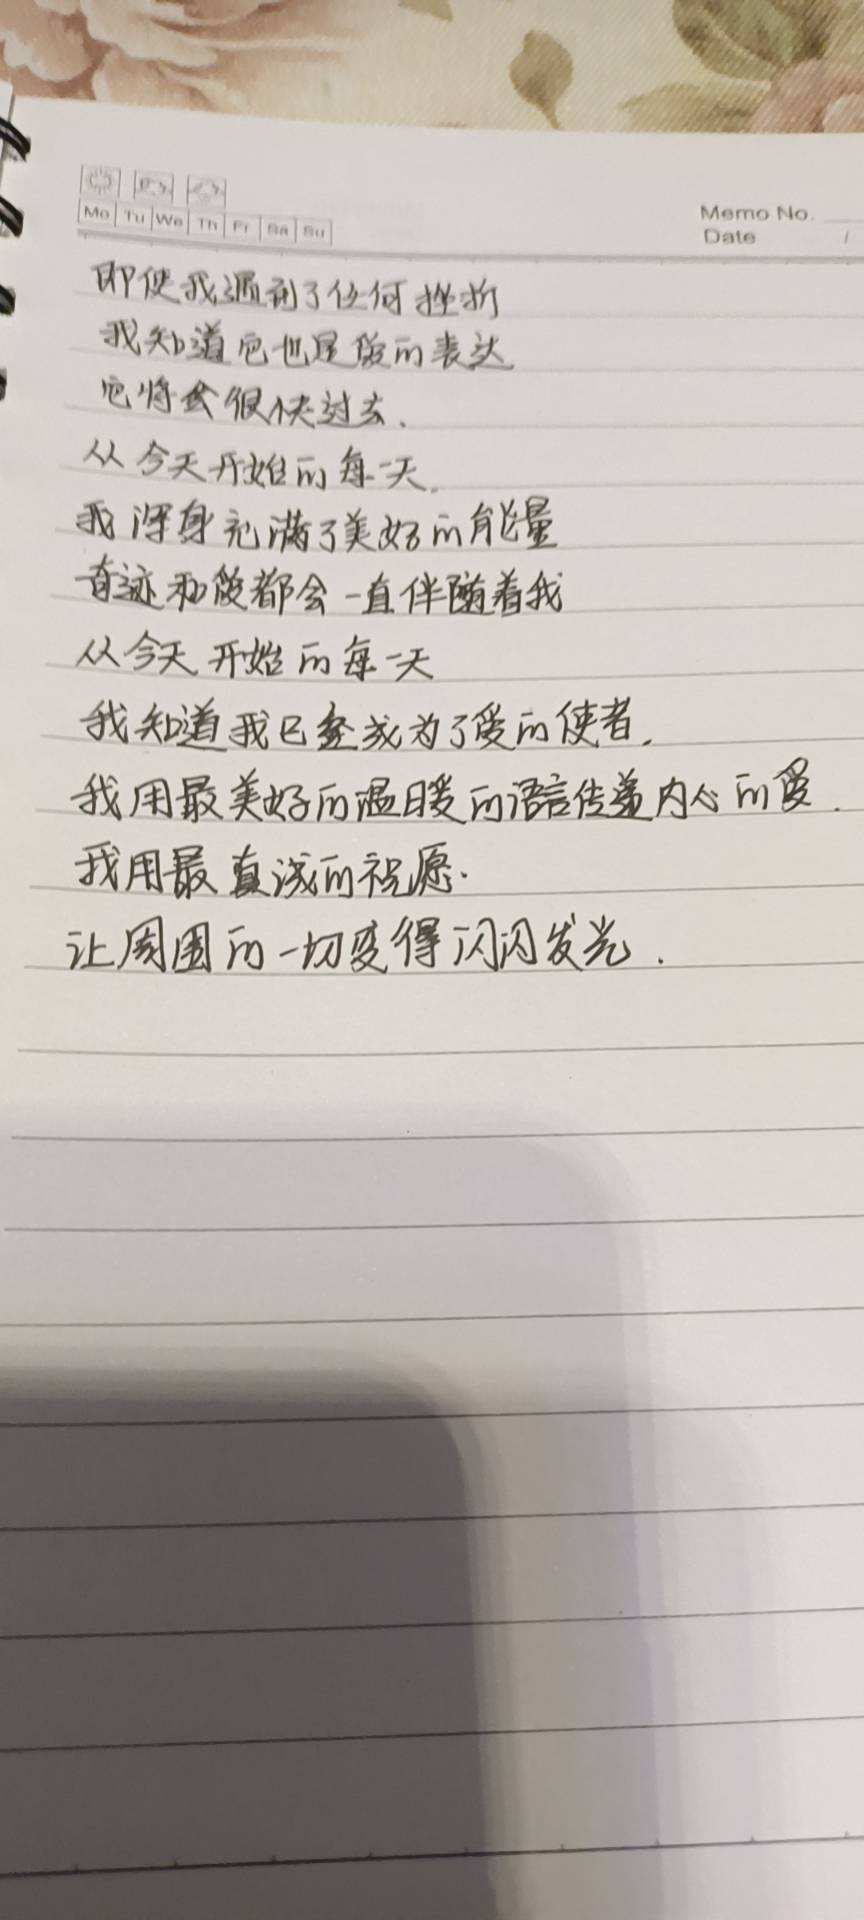 Mo Tu We Th Fr Sa Su
Memo No.
Date /
即使我遇到了任何挫折
我知道它也是爱的表达
它将会很快过去.
从今天开始的每一天.
我浑身充满了美好的能量
奇迹和爱都会一直伴随着我
从今天开始的每一天
我知道我已经成为了爱的使者.
我用最美好的温暖的语言传递内心的爱.
我用最真诚的祝愿.
让周围的一切变得闪闪发光.